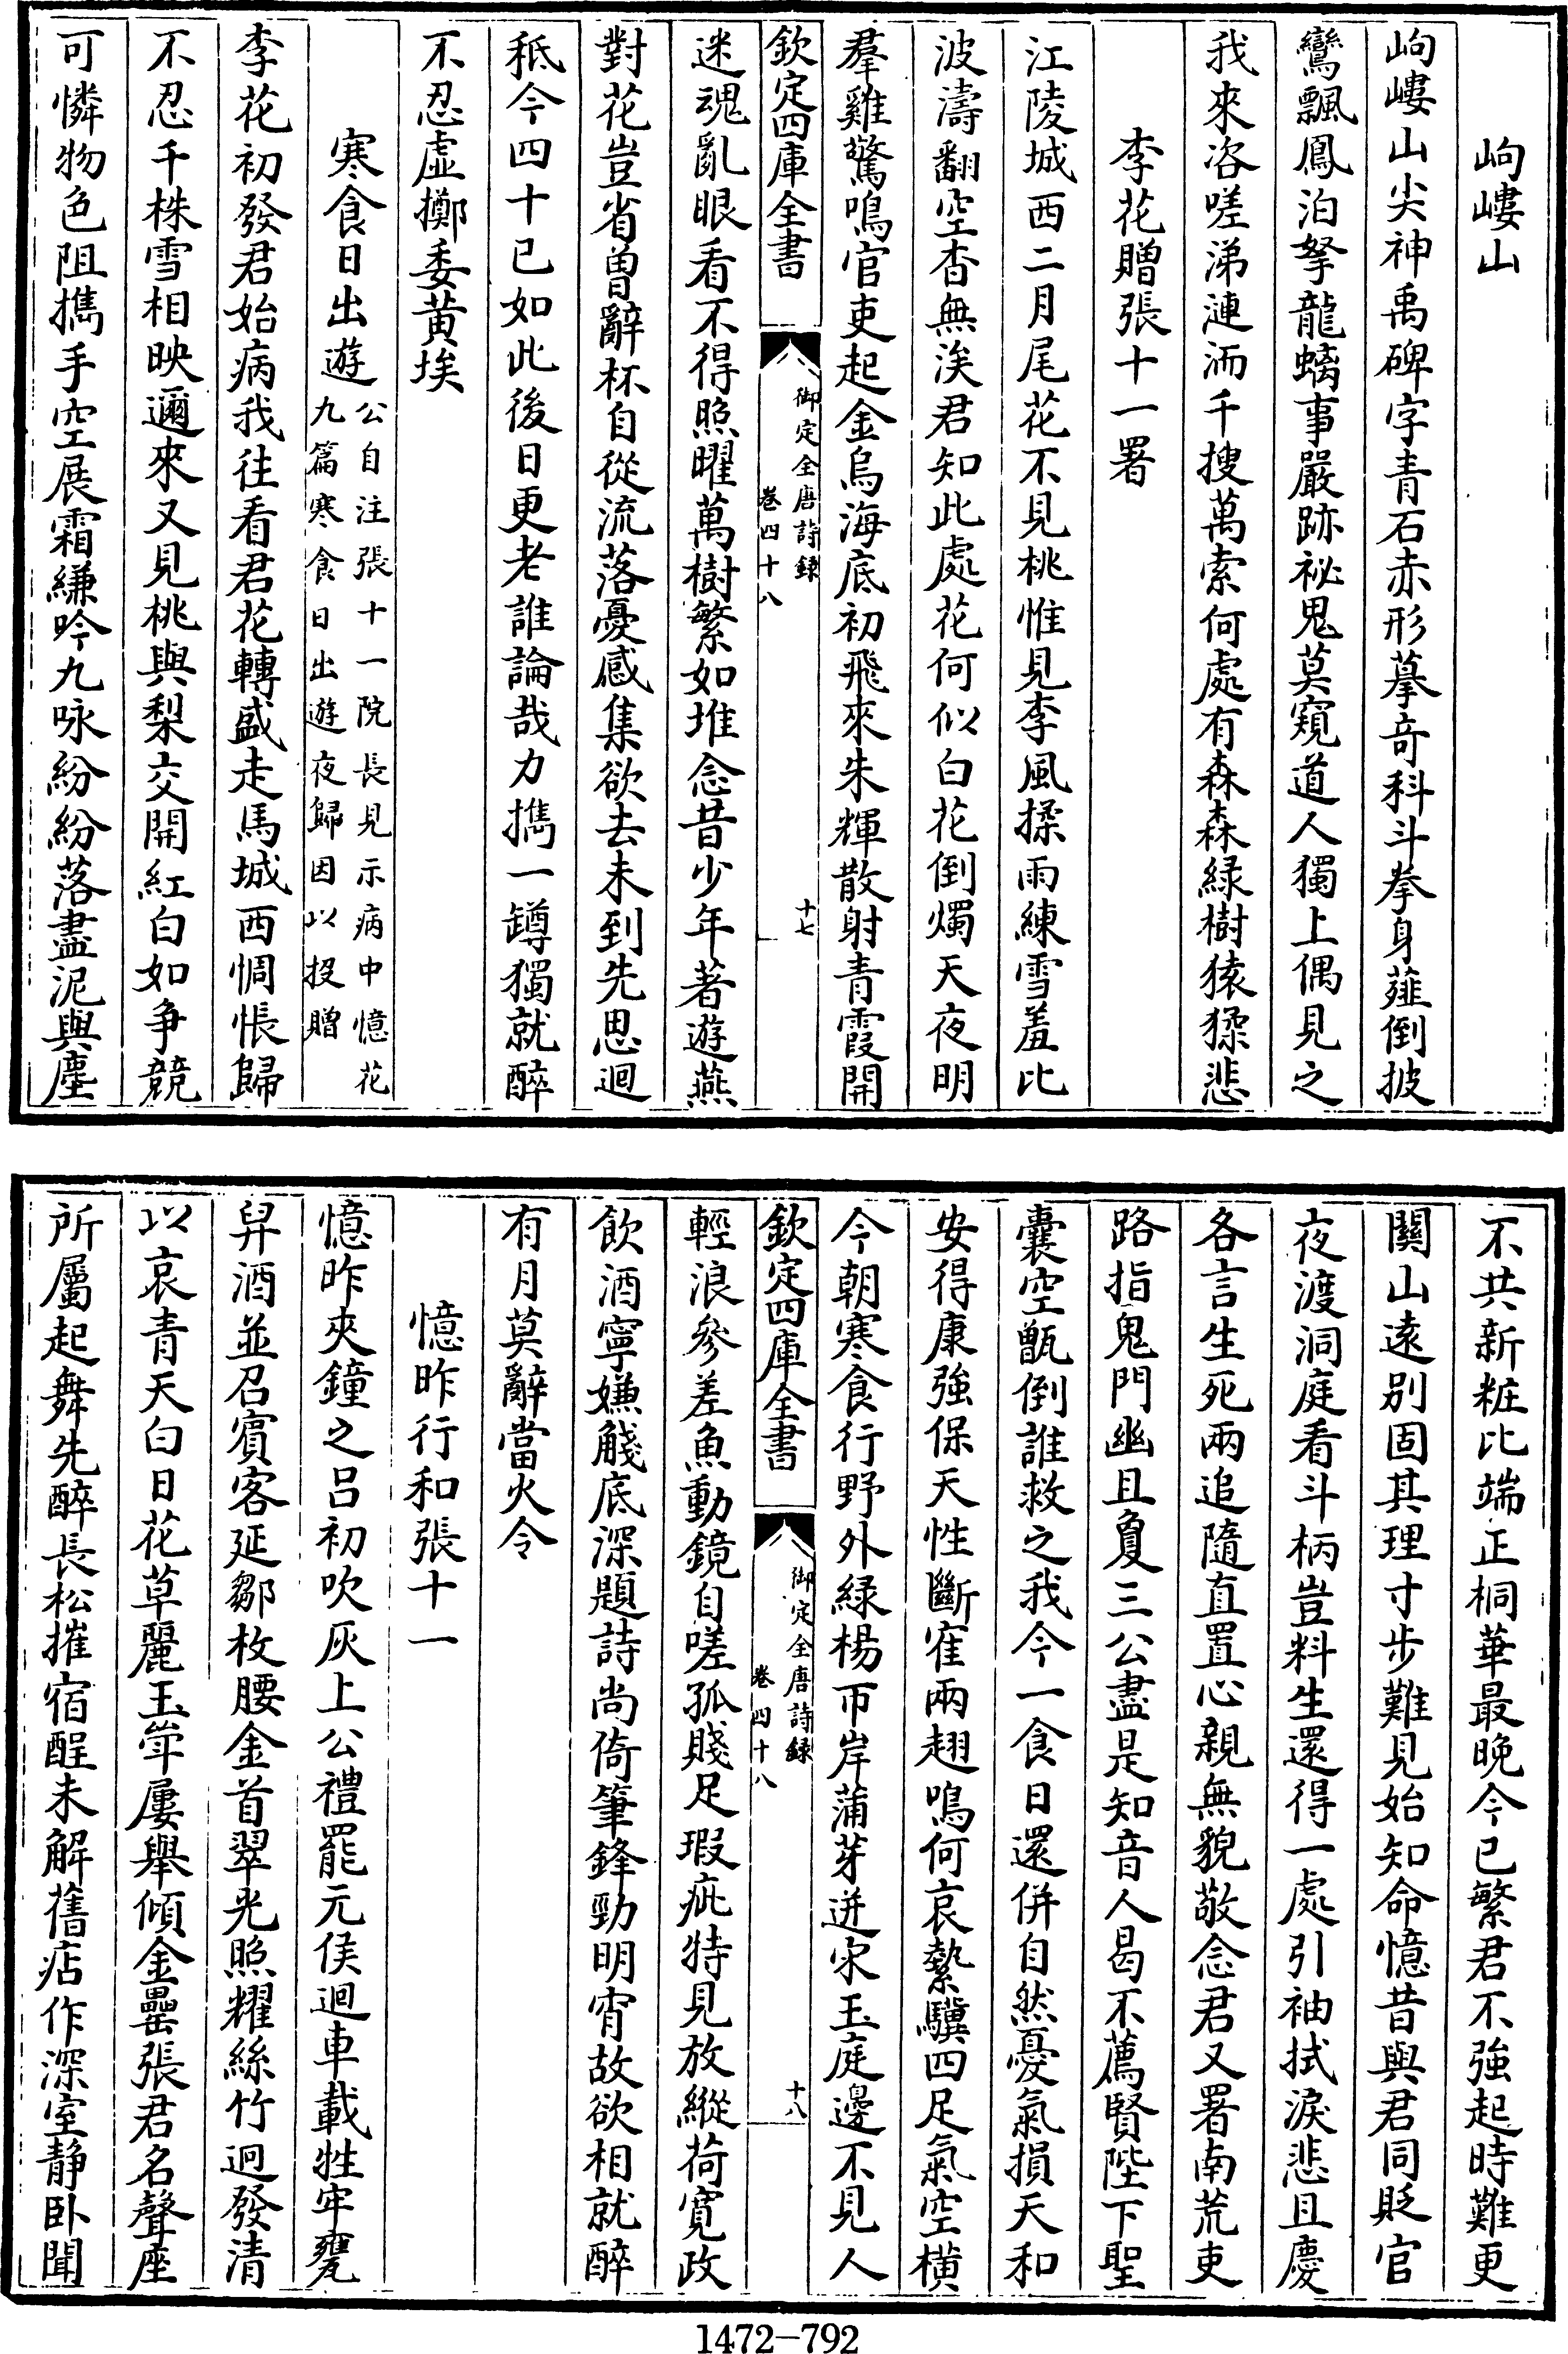 岣嶁山
岣嶁山尖神禹碑字青石赤形摹奇科斗拳身薤倒披
鸞飄鳳泊拏龍螭事嚴跡祕鬼莫窺道人獨上偶見之
我來咨嗟涕漣洏千搜萬索何處有森森緑樹猿猱悲
李花贈張十一署
江陵城西二月尾花不見桃惟見李風揉雨練雪羞比
波濤翻空杳無涘君知此處花何似白花倒燭天夜明
羣雞驚鳴官吏起金烏海底初飛來朱輝散射青霞開
欽定四庫全書
御定全唐詩録
卷四十八
十七
迷魂亂眼看不得照曜萬樹繁如堆念昔少年著遊燕
對花豈省曽辭杯自從流落憂感集欲去未到先思迴
秪今四十已如此後日更老誰論哉力攜一罇獨就醉
不忍虛擲委黄埃
寒食日出遊
公自注張十一院長見示病中憶花
九篇寒食日出遊夜歸因以投贈
李花初發君始病我往看君花轉盛走馬城西惆悵歸
不忍千株雪相映邇來又見桃與梨交開紅白如争競
可憐物色阻攜手空展霜縑吟九咏紛紛落盡泥與塵
不共新粧比端正桐華最晚今已繁君不強起時難更
關山遠别固其理寸步難見始知命憶昔與君同貶官
夜渡洞庭看斗柄豈料生還得一處引袖拭淚悲且慶
各言生死兩追隨直置心親無貌敬念君又署南荒吏
路指鬼門幽且敻三公盡是知音人曷不薦賢陛下聖
囊空甑倒誰救之我今一食日還併自然憂氣損天和
安得康強保天性斷寉兩翅鳴何哀縶驥四足氣空橫
今朝寒食行野外緑楊帀岸蒲芽迸宋玉庭邊不見人
欽定四庫全書
御定全唐詩録
卷四十八
十八
輕浪參差魚動鏡自嗟孤賤足瑕疵特見放縱荷寛政
飲酒寧嫌觴底深題詩尚倚筆鋒勁明宵故欲相就醉
有月莫辭當火令
憶昨行和張十一
憶昨夾鐘之吕初吹灰上公禮罷元侯迴車載牲牢甕
舁酒並召賓客延鄒枚腰金首翠光照耀絲竹迥發清
以哀青天白日花草麗玉斝屢舉傾金罍張君名聲座
所屬起舞先醉長松摧宿酲未解舊痁作深室静卧聞
1472-792